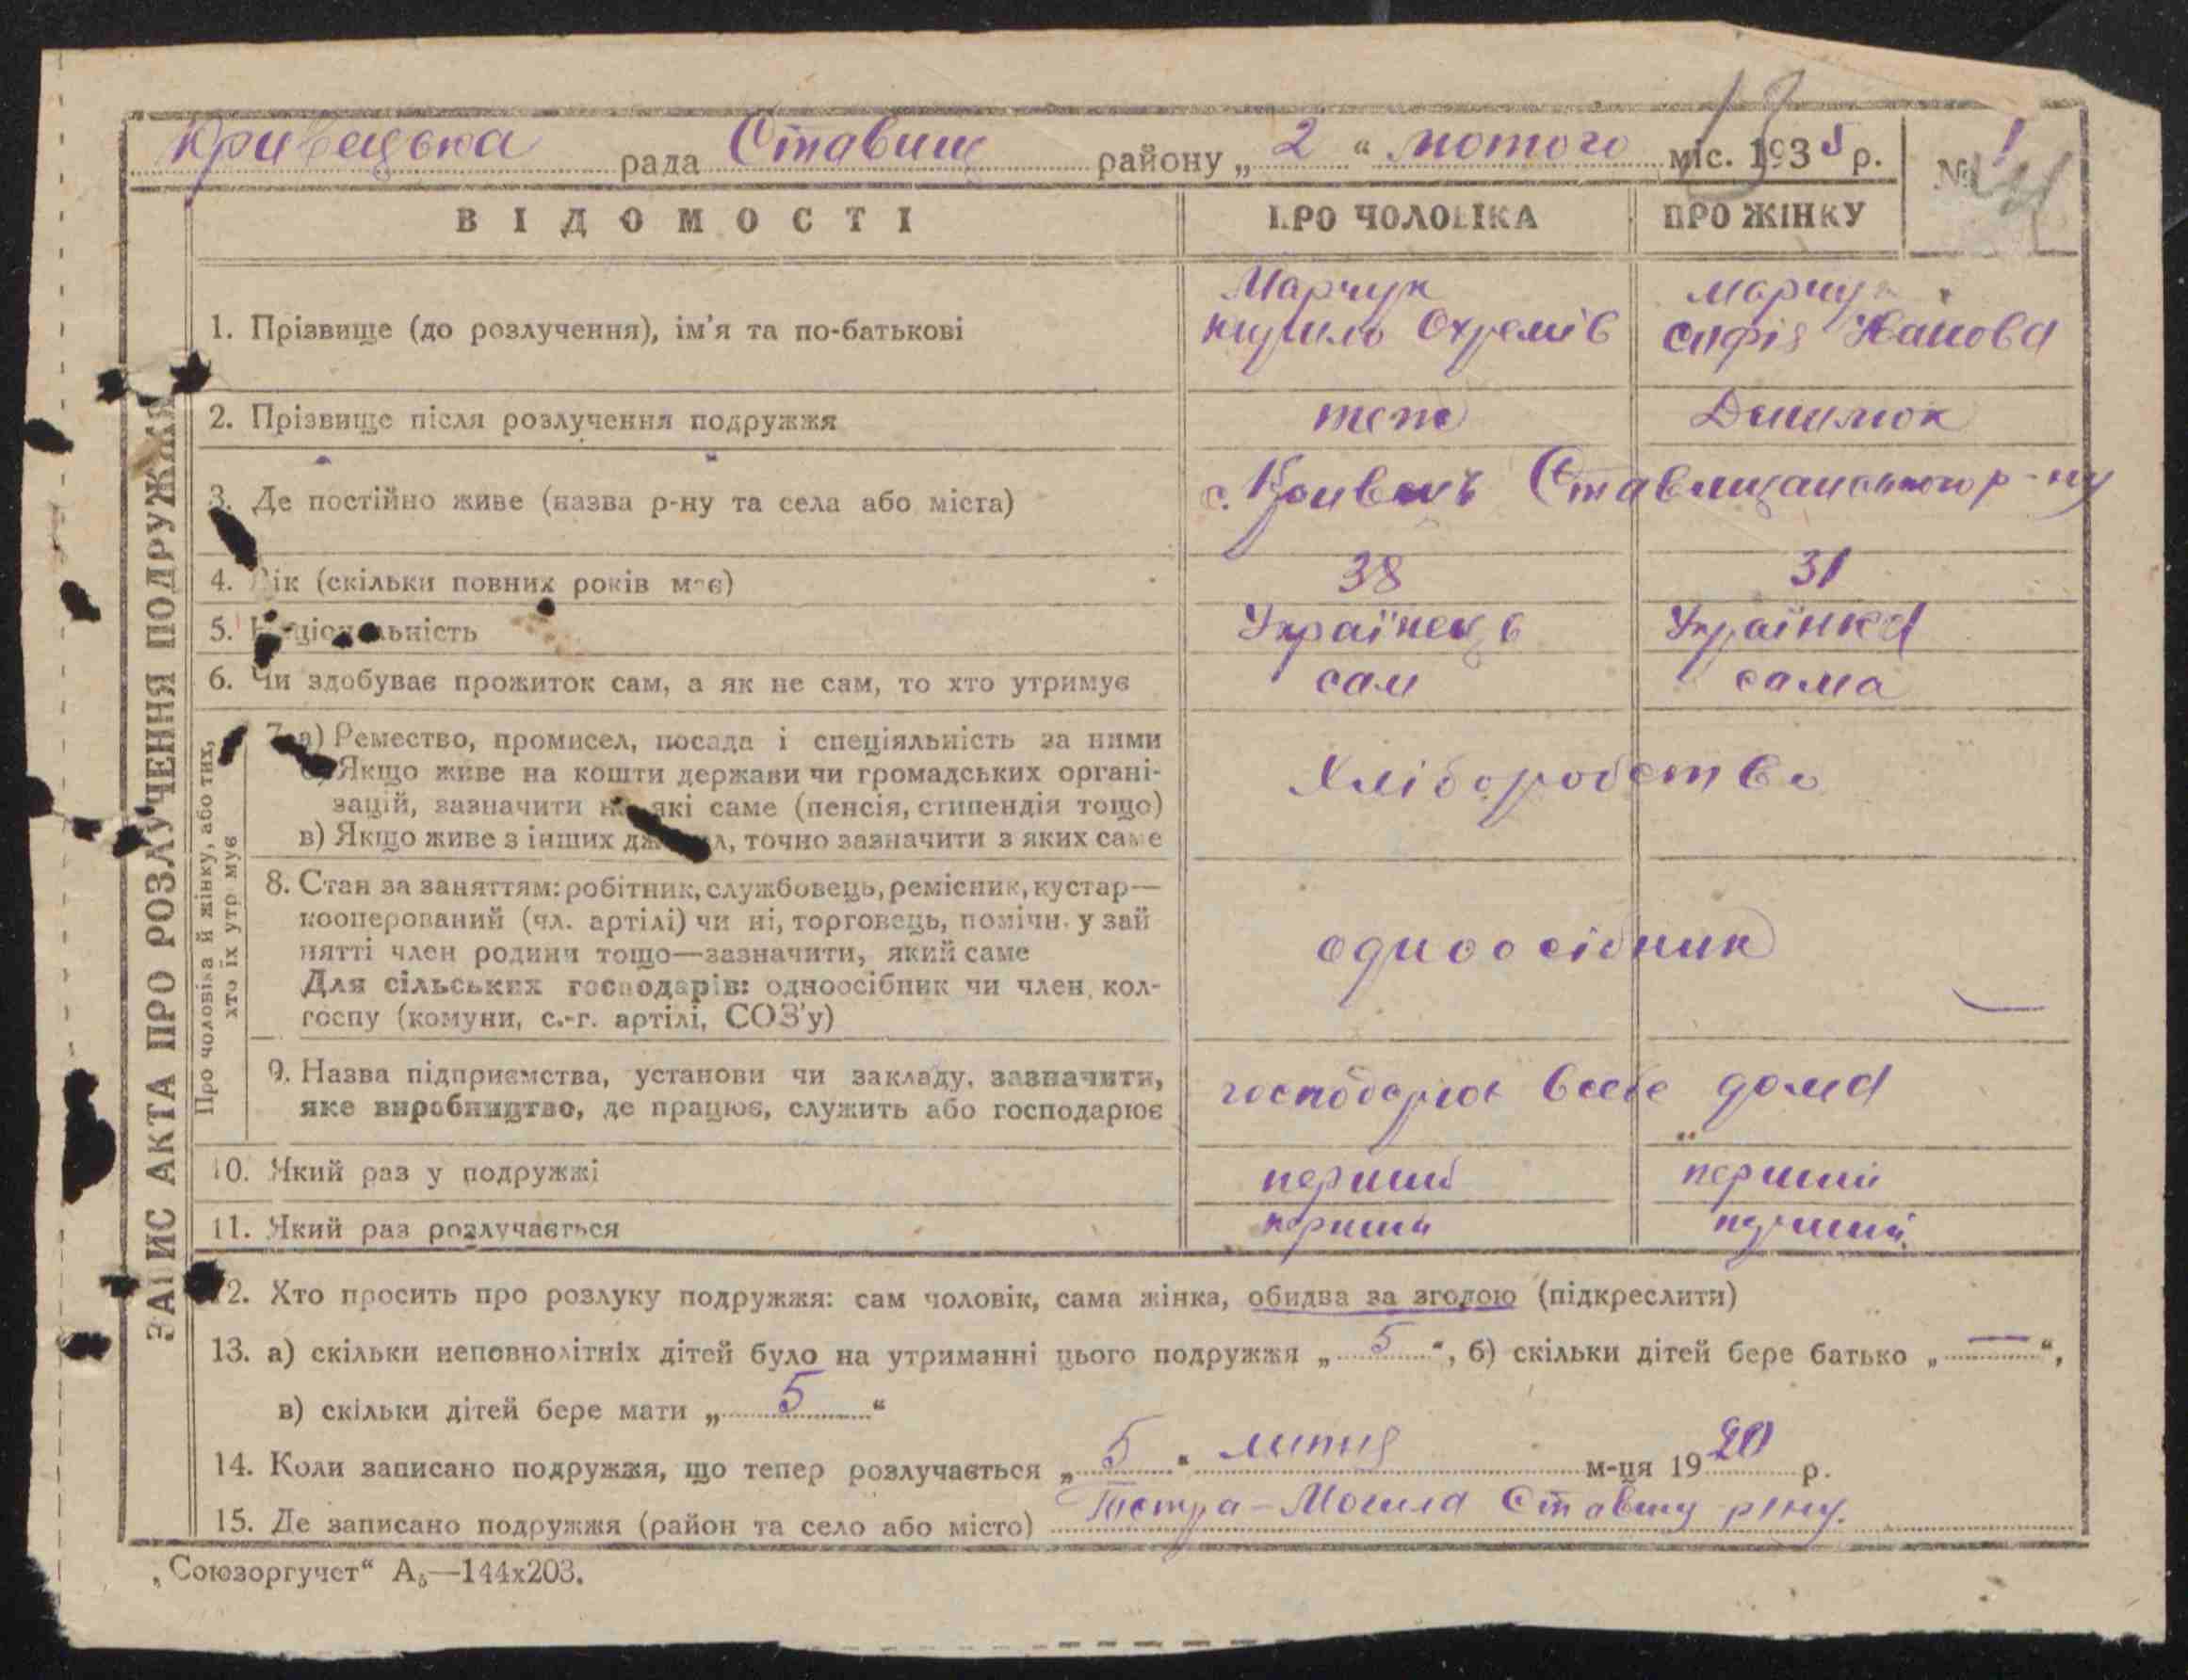 Кривецька рада Ставищ району „ 2 “ лютого міс. 1935 р. № 1
ВІДОМОСТІ ПРО ЧОЛОВІКА ПРО ЖІНКУ
Марчук Марчук
1. Прізвище (до розлучення), ім'я та по-батькові Кирило Охремів Софія Іванова
2. Прізвище після розлучення подружжя теж
3. Де постійно живе (назва р-ну та села або міста) с. Кривець Ставищанського р-ну
4. Вік (скільки повних років має) 38 31
5. Національність Українець Українка
6. Чи здобуває прожиток сам, а як не сам, то хто утримує сам сама
7. а) Ремество, промисел, посада і спеціяльність за ними
б) Якщо живе на кошти держави чи громадських органі-
зацій, зазначити на які саме (пенсія, стипендія тощо) Хліборобство
в) Якщо живе з інших джерел, точно зазначити з яких саме
8. Стан за заняттям: робітник, службовець, ремісник, кустар—
кооперований (чл. артілі) чи ні, торговець, помічн. у зай
нятті член родини тощо—зазначити, який саме одноосібник
Для сільських господарів: одноосібник чи член кол-
госпу (комуни, с.-г. артілі, СОЗ'у)
9. Назва підприємства, установи чи закладу, зазначити, господарює в себе дома
яке виробництво, де працює, служить або господарює
10. Який раз у подружжі перший перший
11. Який раз розлучається перший перший
12. Хто просить про розлуку подружжя: сам чоловік, сама жінка, обидва за згодою (підкреслити)
13. а) скільки неповнолітніх дітей було на утриманні цього подружжя „ 5 “, б) скільки дітей бере батько „ — “,
в) скільки дітей бере мати „ 5 “
14. Коли записано подружжя, що тепер розлучається „ 5 “ липня м-ця 1920 р.
15. Де записано подружжя (район та село або місто) Гостра-Могила Ставищ р-ну.
„Союзоргучет“ А₅—144х203.
ЗАПИС АКТА ПРО РОЗЛУЧЕННЯ ПОДРУЖЖЯ
Про чоловіка й жінку, або тих,
хто їх утримує